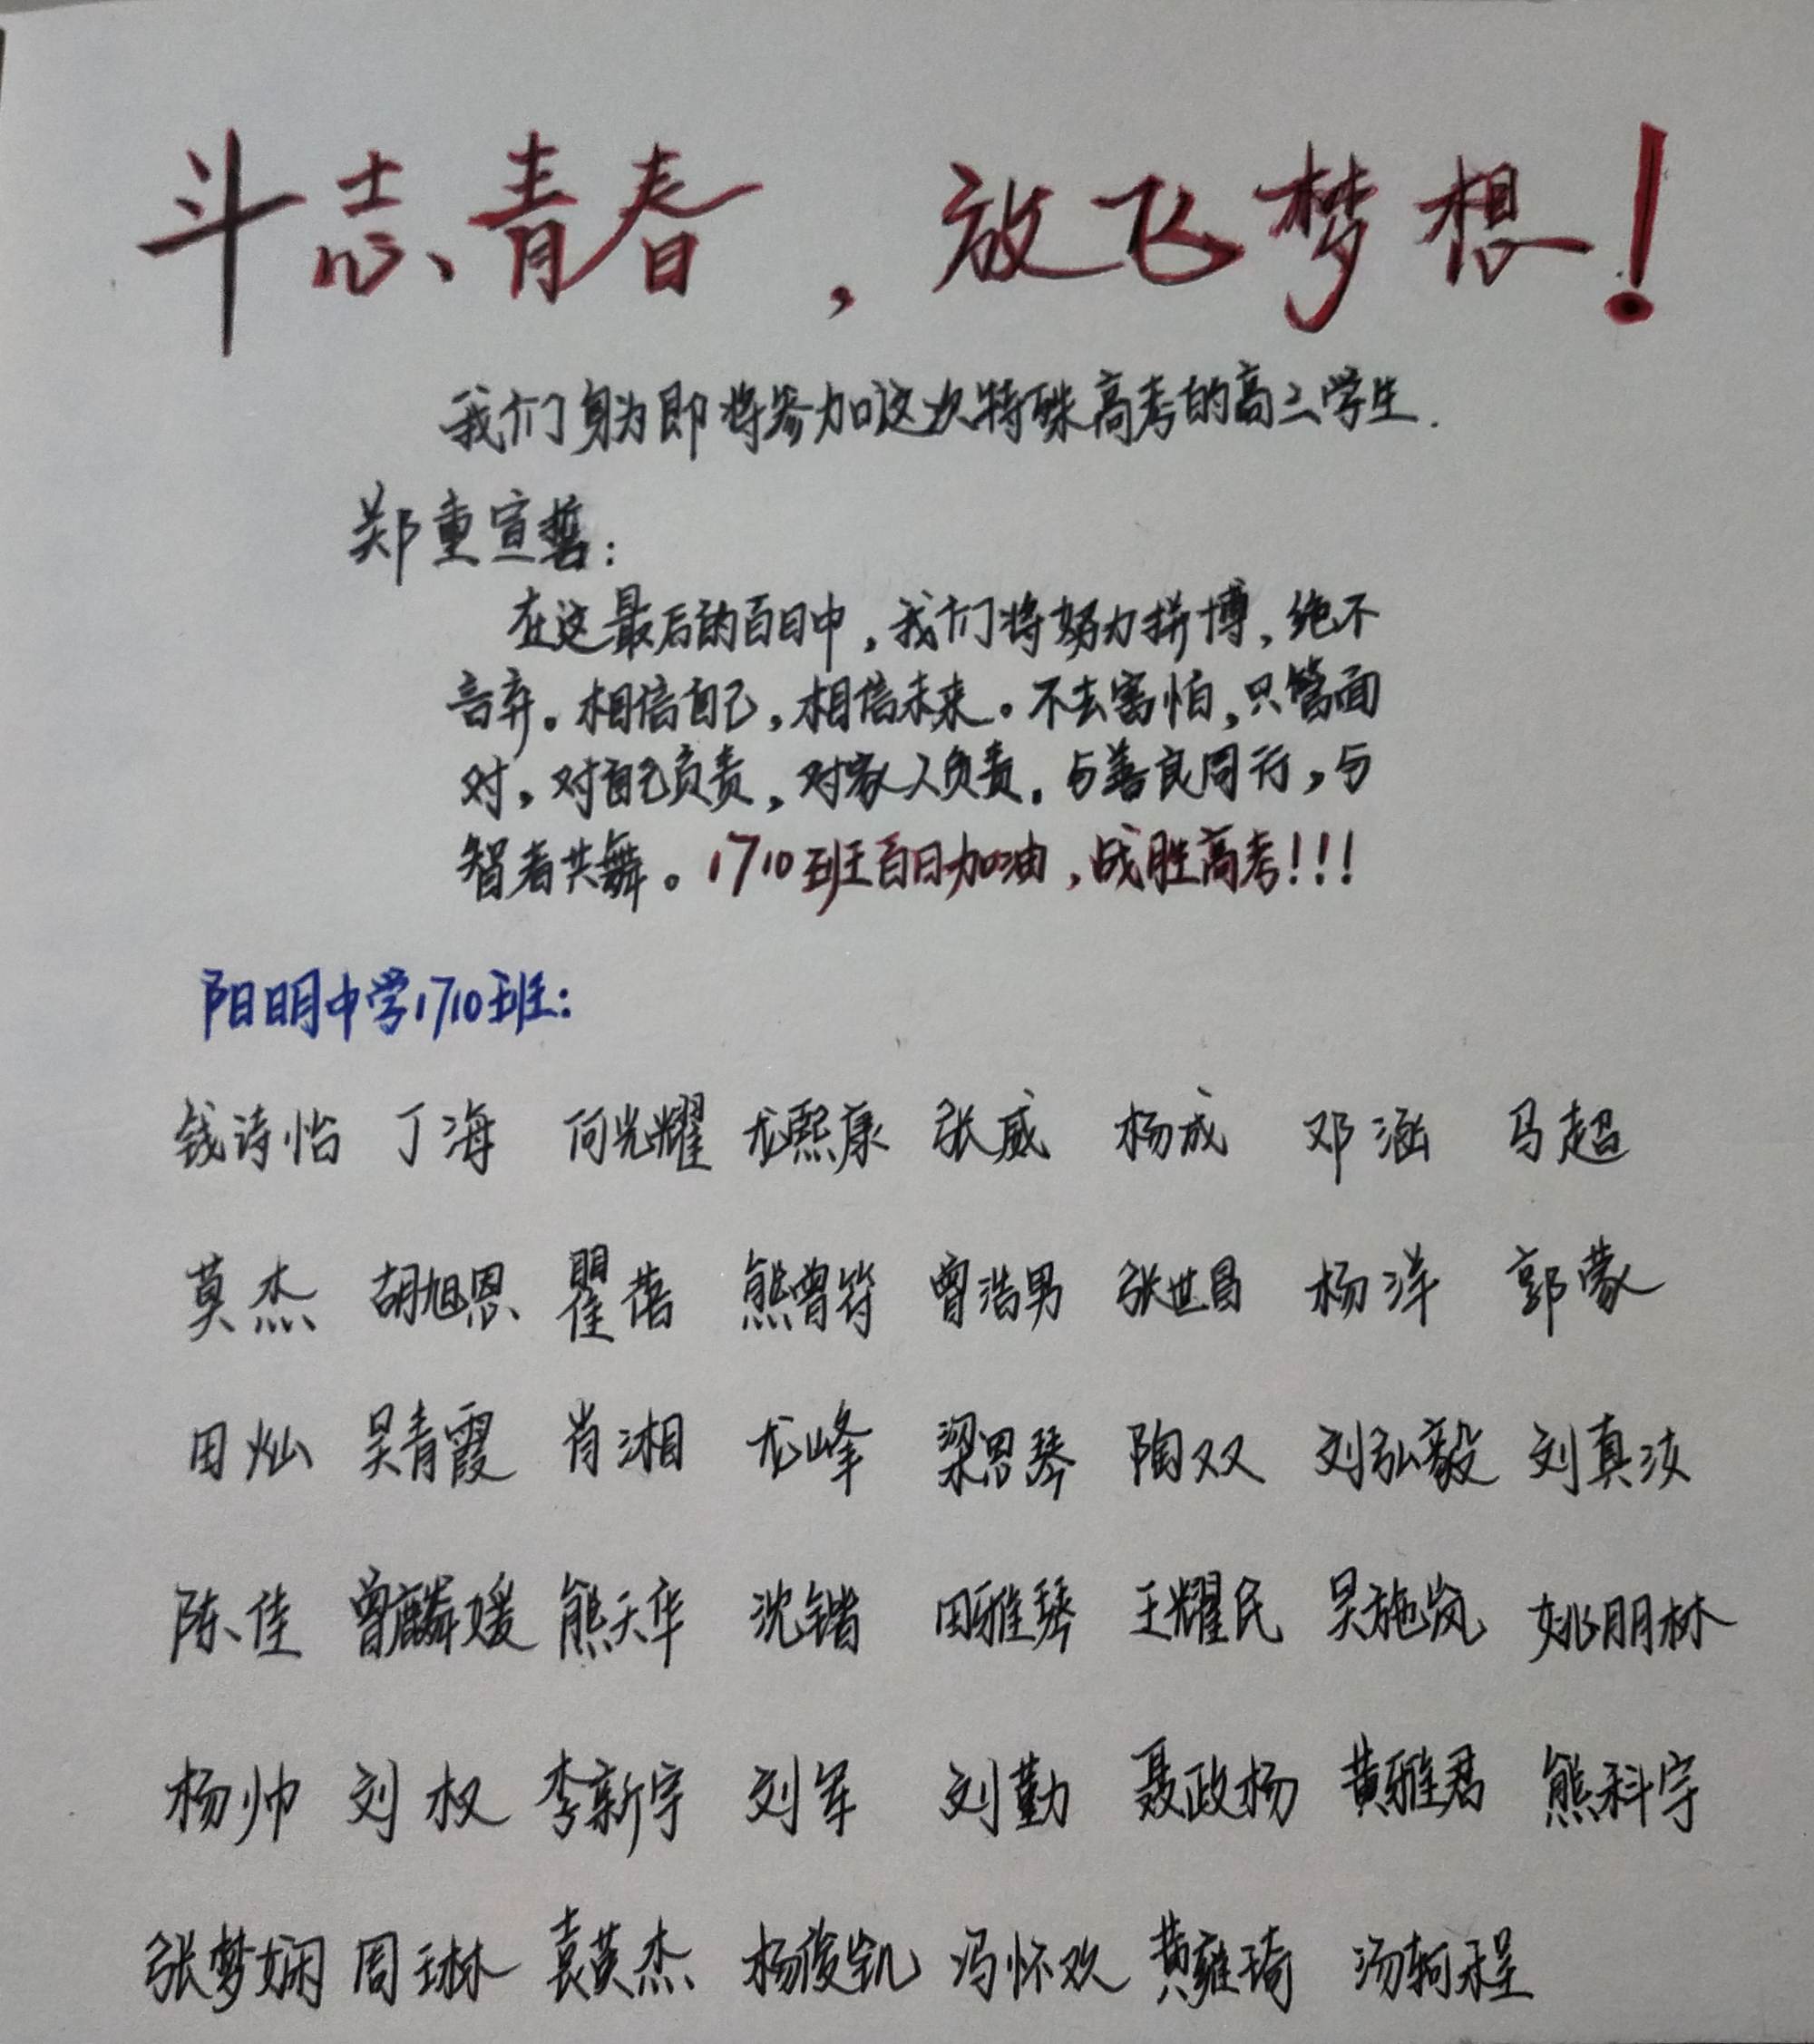 斗志青春，放飞梦想！
我们身为即将参加这次特殊高考的高三学生.
郑重宣誓：
在这最后的百日中，我们将努力拼博，绝不
言弃。相信自己，相信未来。不去害怕，只管面
对，对自己负责，对家人负责。与善良同行，与
智者共舞。1710班百日加油，战胜高考！！！
阳明中学1710班：
钱诗怡 丁海 向光耀 尤熙康 张威 杨成 邓涵 马超
莫杰 胡旭恩 瞿蓓 熊曾符 曾浩男 张世昌 杨洋 郭蒙
田灿 吴青霞 肖湘 尤峰 梁思琴 陶双 刘弘毅 刘真汝
陈佳 曾麟媛 熊天华 沈锴 田雅琴 王耀民 吴施岚 姚朋林
杨帅 刘权 李新宇 刘军 刘勤 聂政杨 黄雅君 熊科宇
张梦娴 周琳 袁英杰 杨俊凯 冯怀欢 黄雍琦 汤轲程